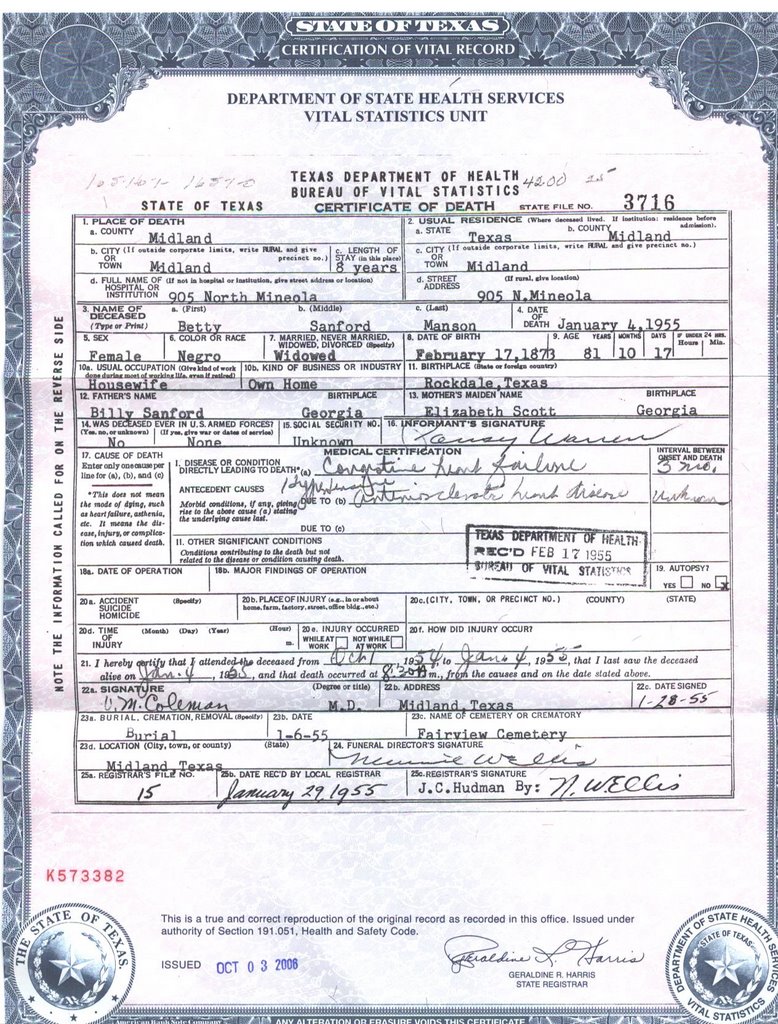 STATE OF TEXAS
CERTIFICATION OF VITAL RECORD
DEPARTMENT OF STATE HEALTH SERVICES
VITAL STATISTICS UNIT
TEXAS DEPARTMENT OF HEALTH
4200
BUREAU OF VITAL STATISTICS
STATE OF TEXAS CERTIFICATE OF DEATH STATE FILE NO. 3716
NOTE THE INFORMATION CALLED FOR ON THE REVERSE SIDE
1. PLACE OF DEATH 2. USUAL RESIDENCE (Where deceased lived. If institution: residence before admission).
a. COUNTY Midland a. STATE Texas b. COUNTY Midland
b. CITY (If outside corporate limits, write RURAL and give precinct no.) OR TOWN Midland c. LENGTH OF STAY (in this place) 8 years c. CITY (If outside corporate limits, write RURAL and give precinct no.) OR TOWN Midland
d. FULL NAME OF (If not in hospital or institution, give street address or location) HOSPITAL OR INSTITUTION 905 North Mineola d. STREET ADDRESS (If rural, give location) 905 N.Mineola
3. NAME OF DECEASED (Type or Print) a. (First) Betty b. (Middle) Sanford c. (Last) Manson 4. DATE OF DEATH January 4,1955
5. SEX Female 6. COLOR OR RACE Negro 7. MARRIED, NEVER MARRIED, WIDOWED, DIVORCED (Specify) Widowed 8. DATE OF BIRTH February 17,1873 9. AGE YEARS 81 MONTHS 10 DAYS 17 IF UNDER 24 HRS. Hours Min.
10a. USUAL OCCUPATION (Give kind of work done during most of working life, even if retired) Housewife 10b. KIND OF BUSINESS OR INDUSTRY Own Home 11. BIRTHPLACE (State or foreign country) Rockdale,Texas
12. FATHER'S NAME Billy Sanford BIRTHPLACE Georgia 13. MOTHER'S MAIDEN NAME Elizabeth Scott BIRTHPLACE Georgia
14. WAS DECEASED EVER IN U.S. ARMED FORCES? (Yes, no, or unknown) No (If yes, give war or dates of service) None 15. SOCIAL SECURITY NO. Unknown 16. INFORMANT'S SIGNATURE
MEDICAL CERTIFICATION
17. CAUSE OF DEATH Enter only one cause per line for (a), (b), and (c)
INTERVAL BETWEEN ONSET AND DEATH
I. DISEASE OR CONDITION DIRECTLY LEADING TO DEATH*(a) Congestive heart failure 3 mo.
*This does not mean the mode of dying, such as heart failure, asthenia, etc. It means the disease, injury, or complication which caused death.
ANTECEDENT CAUSES Hypertensive
Morbid conditions, if any, giving rise to the above cause (a) stating the underlying cause last. DUE TO (b) arteriosclerotic heart disease Unknown
DUE TO (c)
II. OTHER SIGNIFICANT CONDITIONS
Conditions contributing to the death but not related to the disease or condition causing death.
TEXAS DEPARTMENT OF HEALTH
REC'D FEB 17 1955
BUREAU OF VITAL STATISTICS
18a. DATE OF OPERATION 18b. MAJOR FINDINGS OF OPERATION 19. AUTOPSY? YES NO X
20a. ACCIDENT SUICIDE HOMICIDE (Specify) 20b. PLACE OF INJURY (e.g., in or about home, farm, factory, street, office bldg., etc.) 20c. (CITY, TOWN, OR PRECINCT NO.) (COUNTY) (STATE)
20d. TIME OF INJURY (Month) (Day) (Year) (Hour) m. 20e. INJURY OCCURRED WHILE AT WORK NOT WHILE AT WORK 20f. HOW DID INJURY OCCUR?
21. I hereby certify that I attended the deceased from Oct 1 1954, to Jan. 4, 1955, that I last saw the deceased
alive on Jan. 4, 1955, and that death occurred at 8:30 m., from the causes and on the date stated above.
22a. SIGNATURE M. Coleman (Degree or title) M.D. 22b. ADDRESS Midland,Texas 22c. DATE SIGNED 1-28-55
23a. BURIAL, CREMATION, REMOVAL (Specify) Burial 23b. DATE 1-6-55 23c. NAME OF CEMETERY OR CREMATORY Fairview Cemetery
23d. LOCATION (City, town, or county) (State) Midland,Texas 24. FUNERAL DIRECTOR'S SIGNATURE
25a. REGISTRAR'S FILE NO. 15 25b. DATE REC'D BY LOCAL REGISTRAR January 29, 1955 25c. REGISTRAR'S SIGNATURE J.C.Hudman By: N. W. Ellis
K573382
This is a true and correct reproduction of the original record as recorded in this office. Issued under
authority of Section 191.051, Health and Safety Code.
ISSUED OCT 03 2006
Geraldine R. Harris
GERALDINE R. HARRIS
STATE REGISTRAR
THE STATE OF TEXAS
DEPARTMENT OF STATE HEALTH SERVICES
STATE OF TEXAS
VITAL STATISTICS
American Bank Note Company
ANY ALTERATION OR ERASURE VOIDS THIS CERTIFICATE